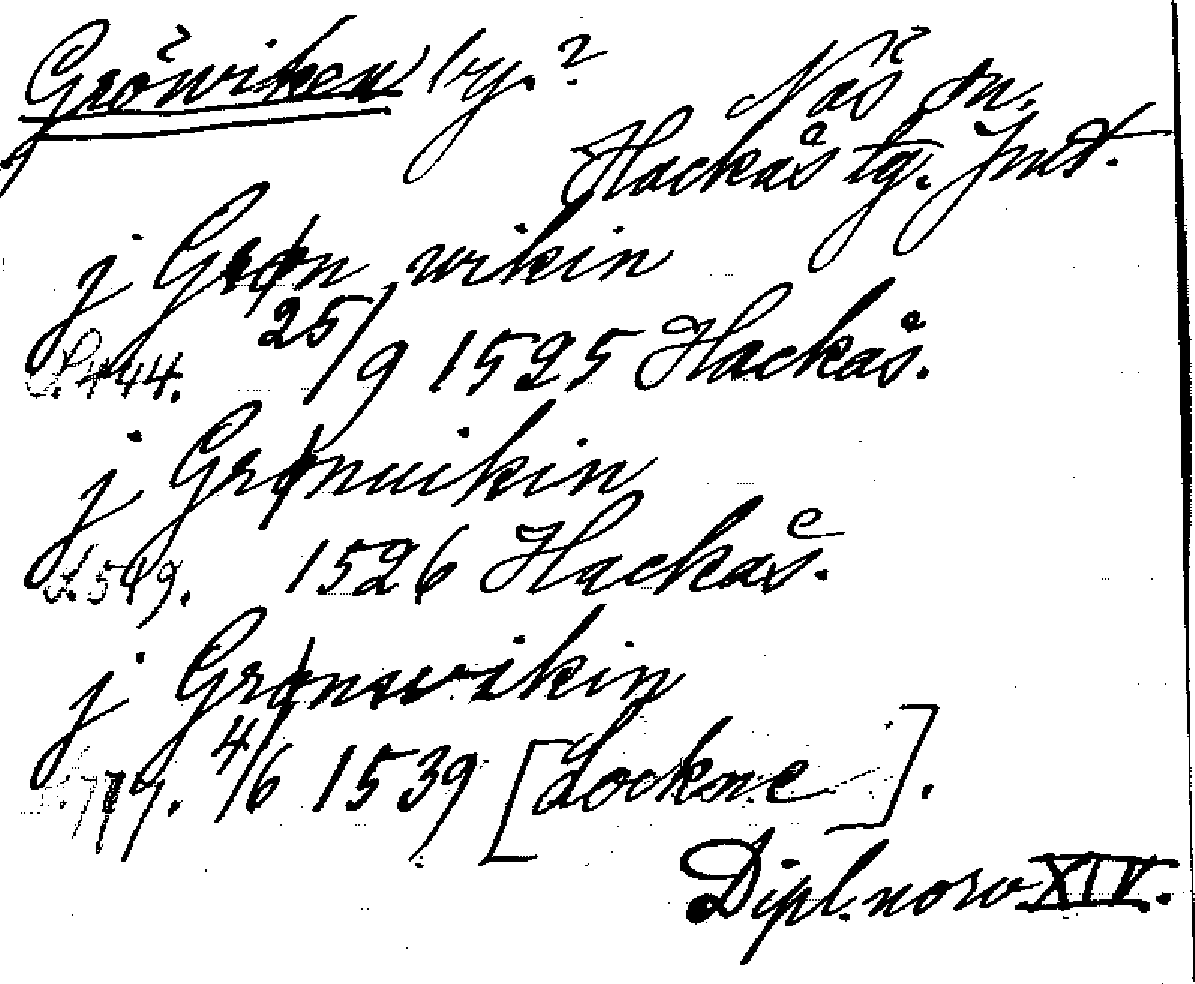 Gröwiken by.?
Näs sn.
Hackås tg. Jmt.
j Grøn wikin
S. 444. 25/9 1525 Hackås.
j Grønuikin
S. 519. 1526 Hackås.
j Grønewikin
4/6 1539 [Lockne].
Dipl. norv XIV.